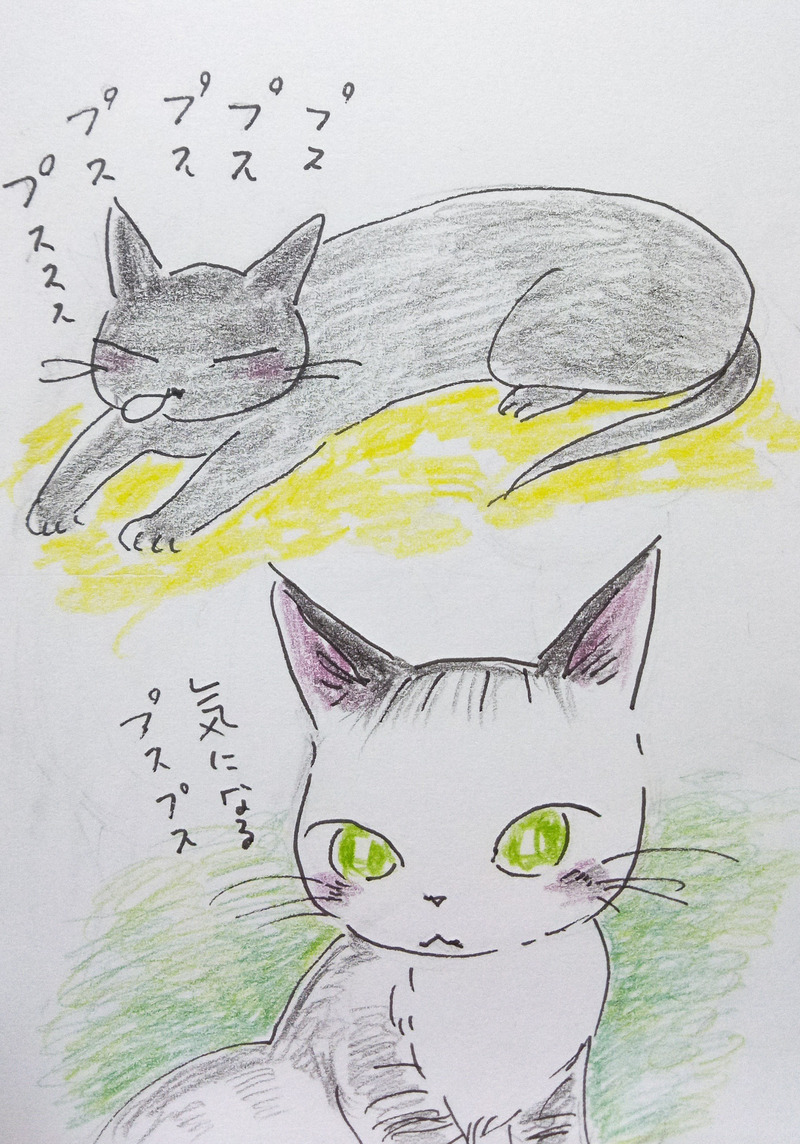 プス
プス
プス
プス
プススス
気になる
プスプス